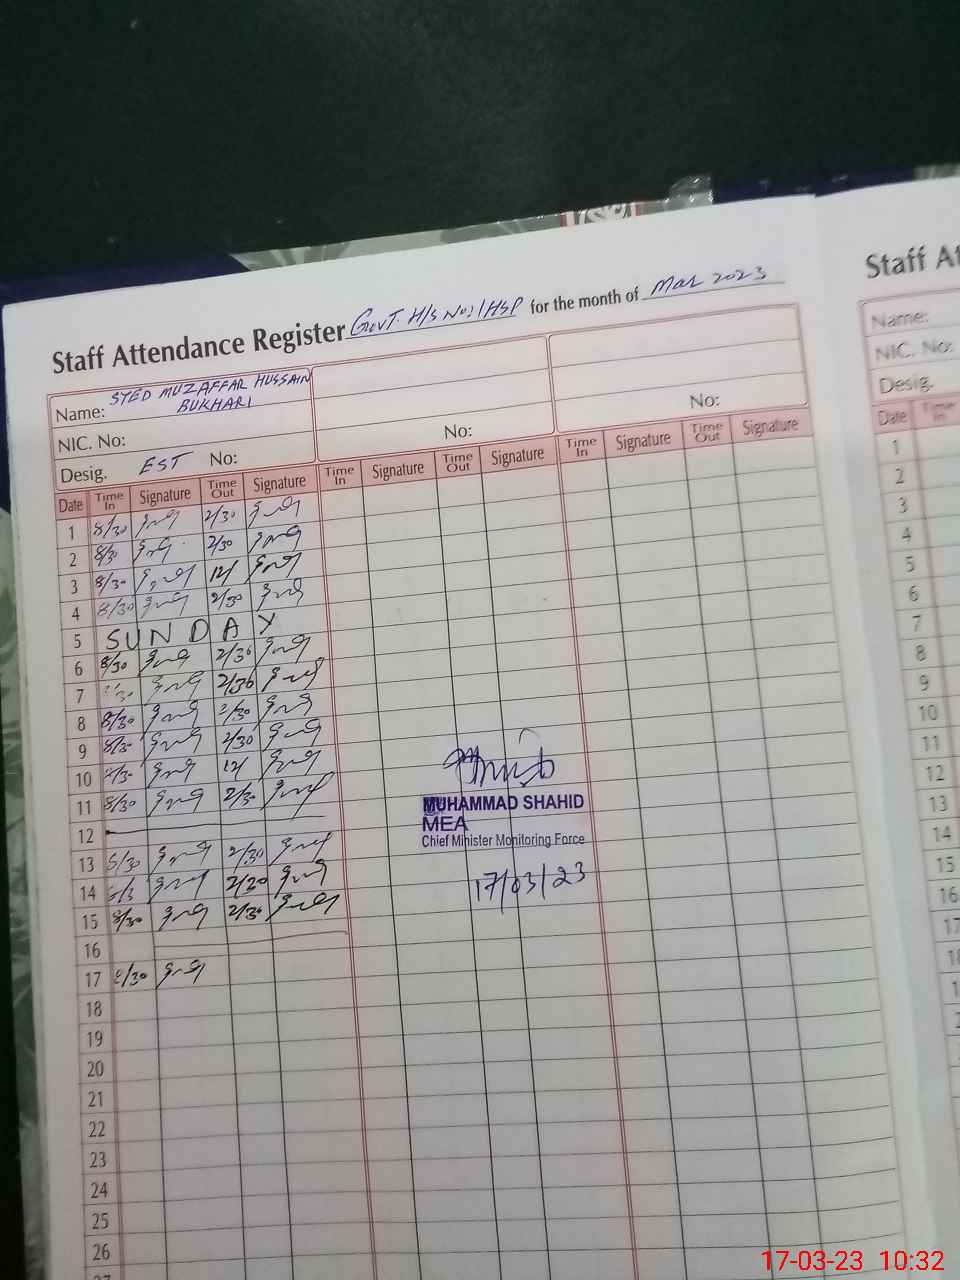 Staff Attendance Register Govt. H/S No:1/HSP for the month of Mar 2023
Name: SYED MUZAFFAR HUSSAIN BUKHARI
NIC. No:
No:
No:
Desig. EST No:
Date Time In Signature Time Out Signature Time In Signature Time Out Signature Time In Signature Time Out Signature
1 8/30 2/30
2 8/30 2/30
3 8/30 12/
4 8/30 2/30
5 SUNDAY
6 8/30 2/30
7 2/30
8 8/30 2/30
9 8/30 2/30
10 12/
11 8/30 2/30
12
13 8/30 2/30
14 2/20
15 8/30 2/30
16
17 8/30
18
19
20
21
22
23
24
25
26
MUHAMMAD SHAHID
MEA
Chief Minister Monitoring Force
17/03/23
Staff
Name:
NIC. No:
Desig.
Date Time In
1
2
3
4
5
6
7
8
9
10
11
12
13
14
15
16
17-03-23 10:32